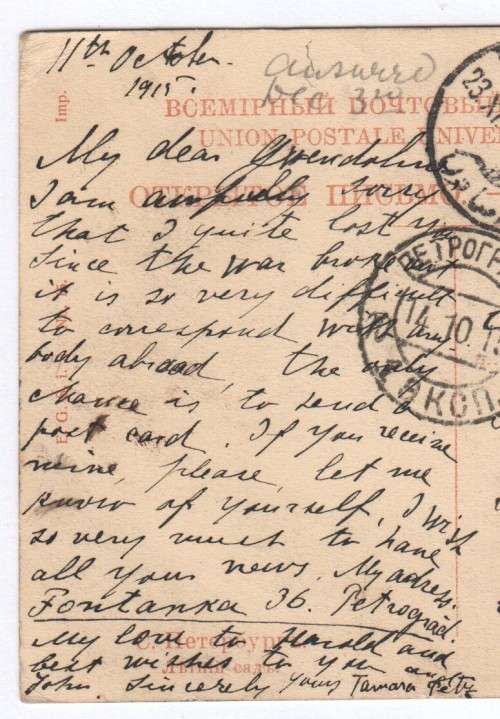 11th October
1915.
answered
Dec 3rd
Imp.
ВСЕМІРНЫЙ ПОЧТОВЫЙ
UNION POSTALE UNIVE
ОТКРЫТОЕ ПИСЬМО.
My dear Gwendoline
I am awfully sorry
that I quite lost you
since the war broke out
it is so very difficult
to correspond with any
body abroad, the only
chance is to send a
post card. If you receive
mine, please, let me
know of yourself, I wish
so very much to have
all your news. My adress:
Fontanka 36. Petrograd
My love to Harold and
best wishes to you and
John. Sincerely yours Tamara
С. Петербургъ.
Лѣтній садъ.
ПЕТРОГР
14.10.15
ЭКСП.
23